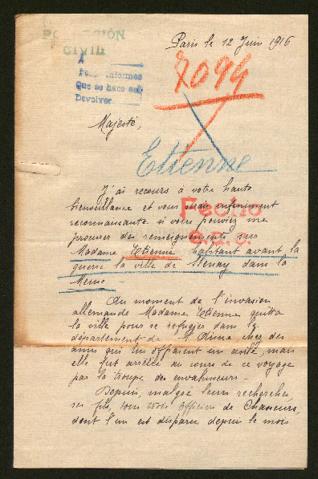 POBLACIÓN
CIVIL
Paris le 12 Juin 1916
A
Pedir informes
Que se hace sab
Devolver.
7094
Majesté,
Etienne
J'ai recours à votre haute
bienveillance et vous serais infiniment
reconnaissante si vous pouviez me
procurer des renseignements sur
Fecho
Madame Etienne habitant avant la
guerre la ville de Stenay dans la
Meuse
Au moment de l'invasion
allemande Madame Etienne quitta
la ville pour se réfugier dans le
département de chez des
amis qui lui offraient un asile, mais
elle fut arrêtée au cours de ce voyage
par la troupe des envahisseurs.
Depuis, malgré leurs recherches
ses fils, tous trois officiers de Chasseurs,
dont l'un est disparu depuis le mois